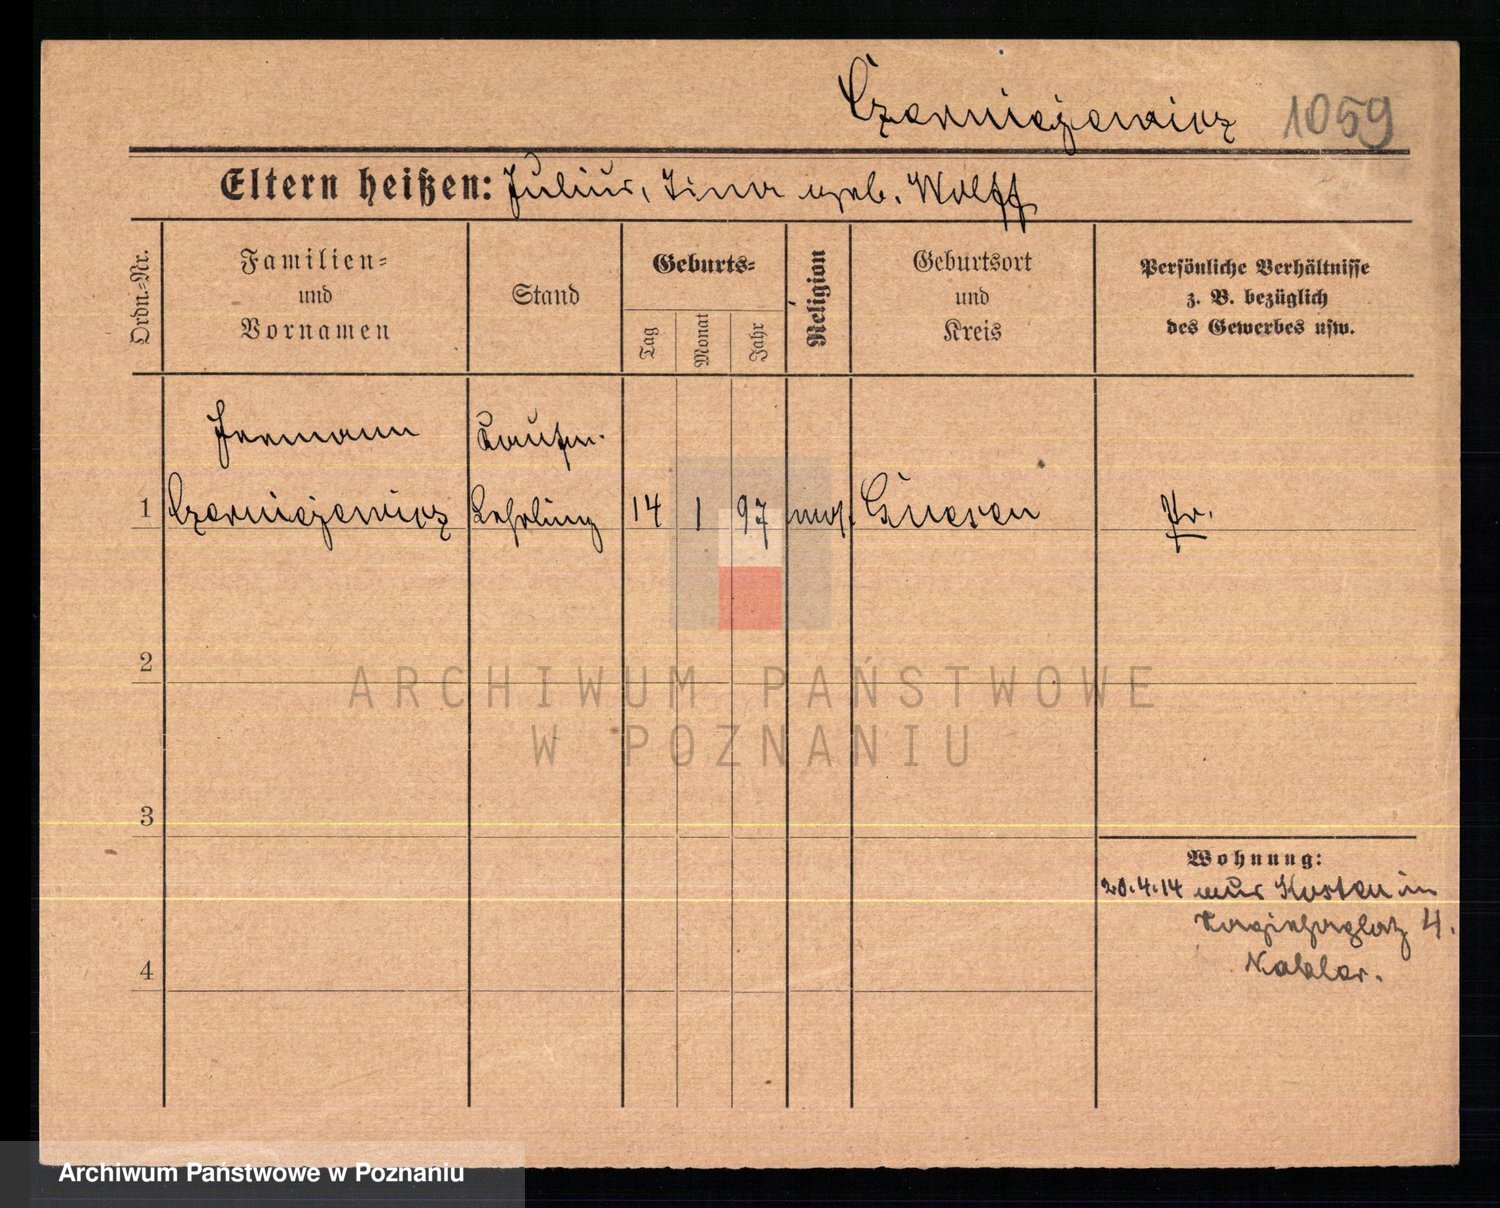 Czerniejewicz 1059
Eltern heißen: Julius, Lina geb. Wolff
Ordn.-Nr.
Familien-
und
Vornamen
Stand
Geburts-
Tag
Monat
Jahr
Religion
Geburtsort
und
Kreis
Persönliche Verhältnisse
z. B. bezüglich
des Gewerbes usw.
Hermann Kaufm.
1 Czerniejewicz Lehrling 14 1 97 mos. Gnesen Pr.
2
ARCHIWUM PAŃSTWOWE
W POZNANIU
3
Wohnung:
20.4.14 aus Kosten in
4.
4
Archiwum Państwowe w Poznaniu